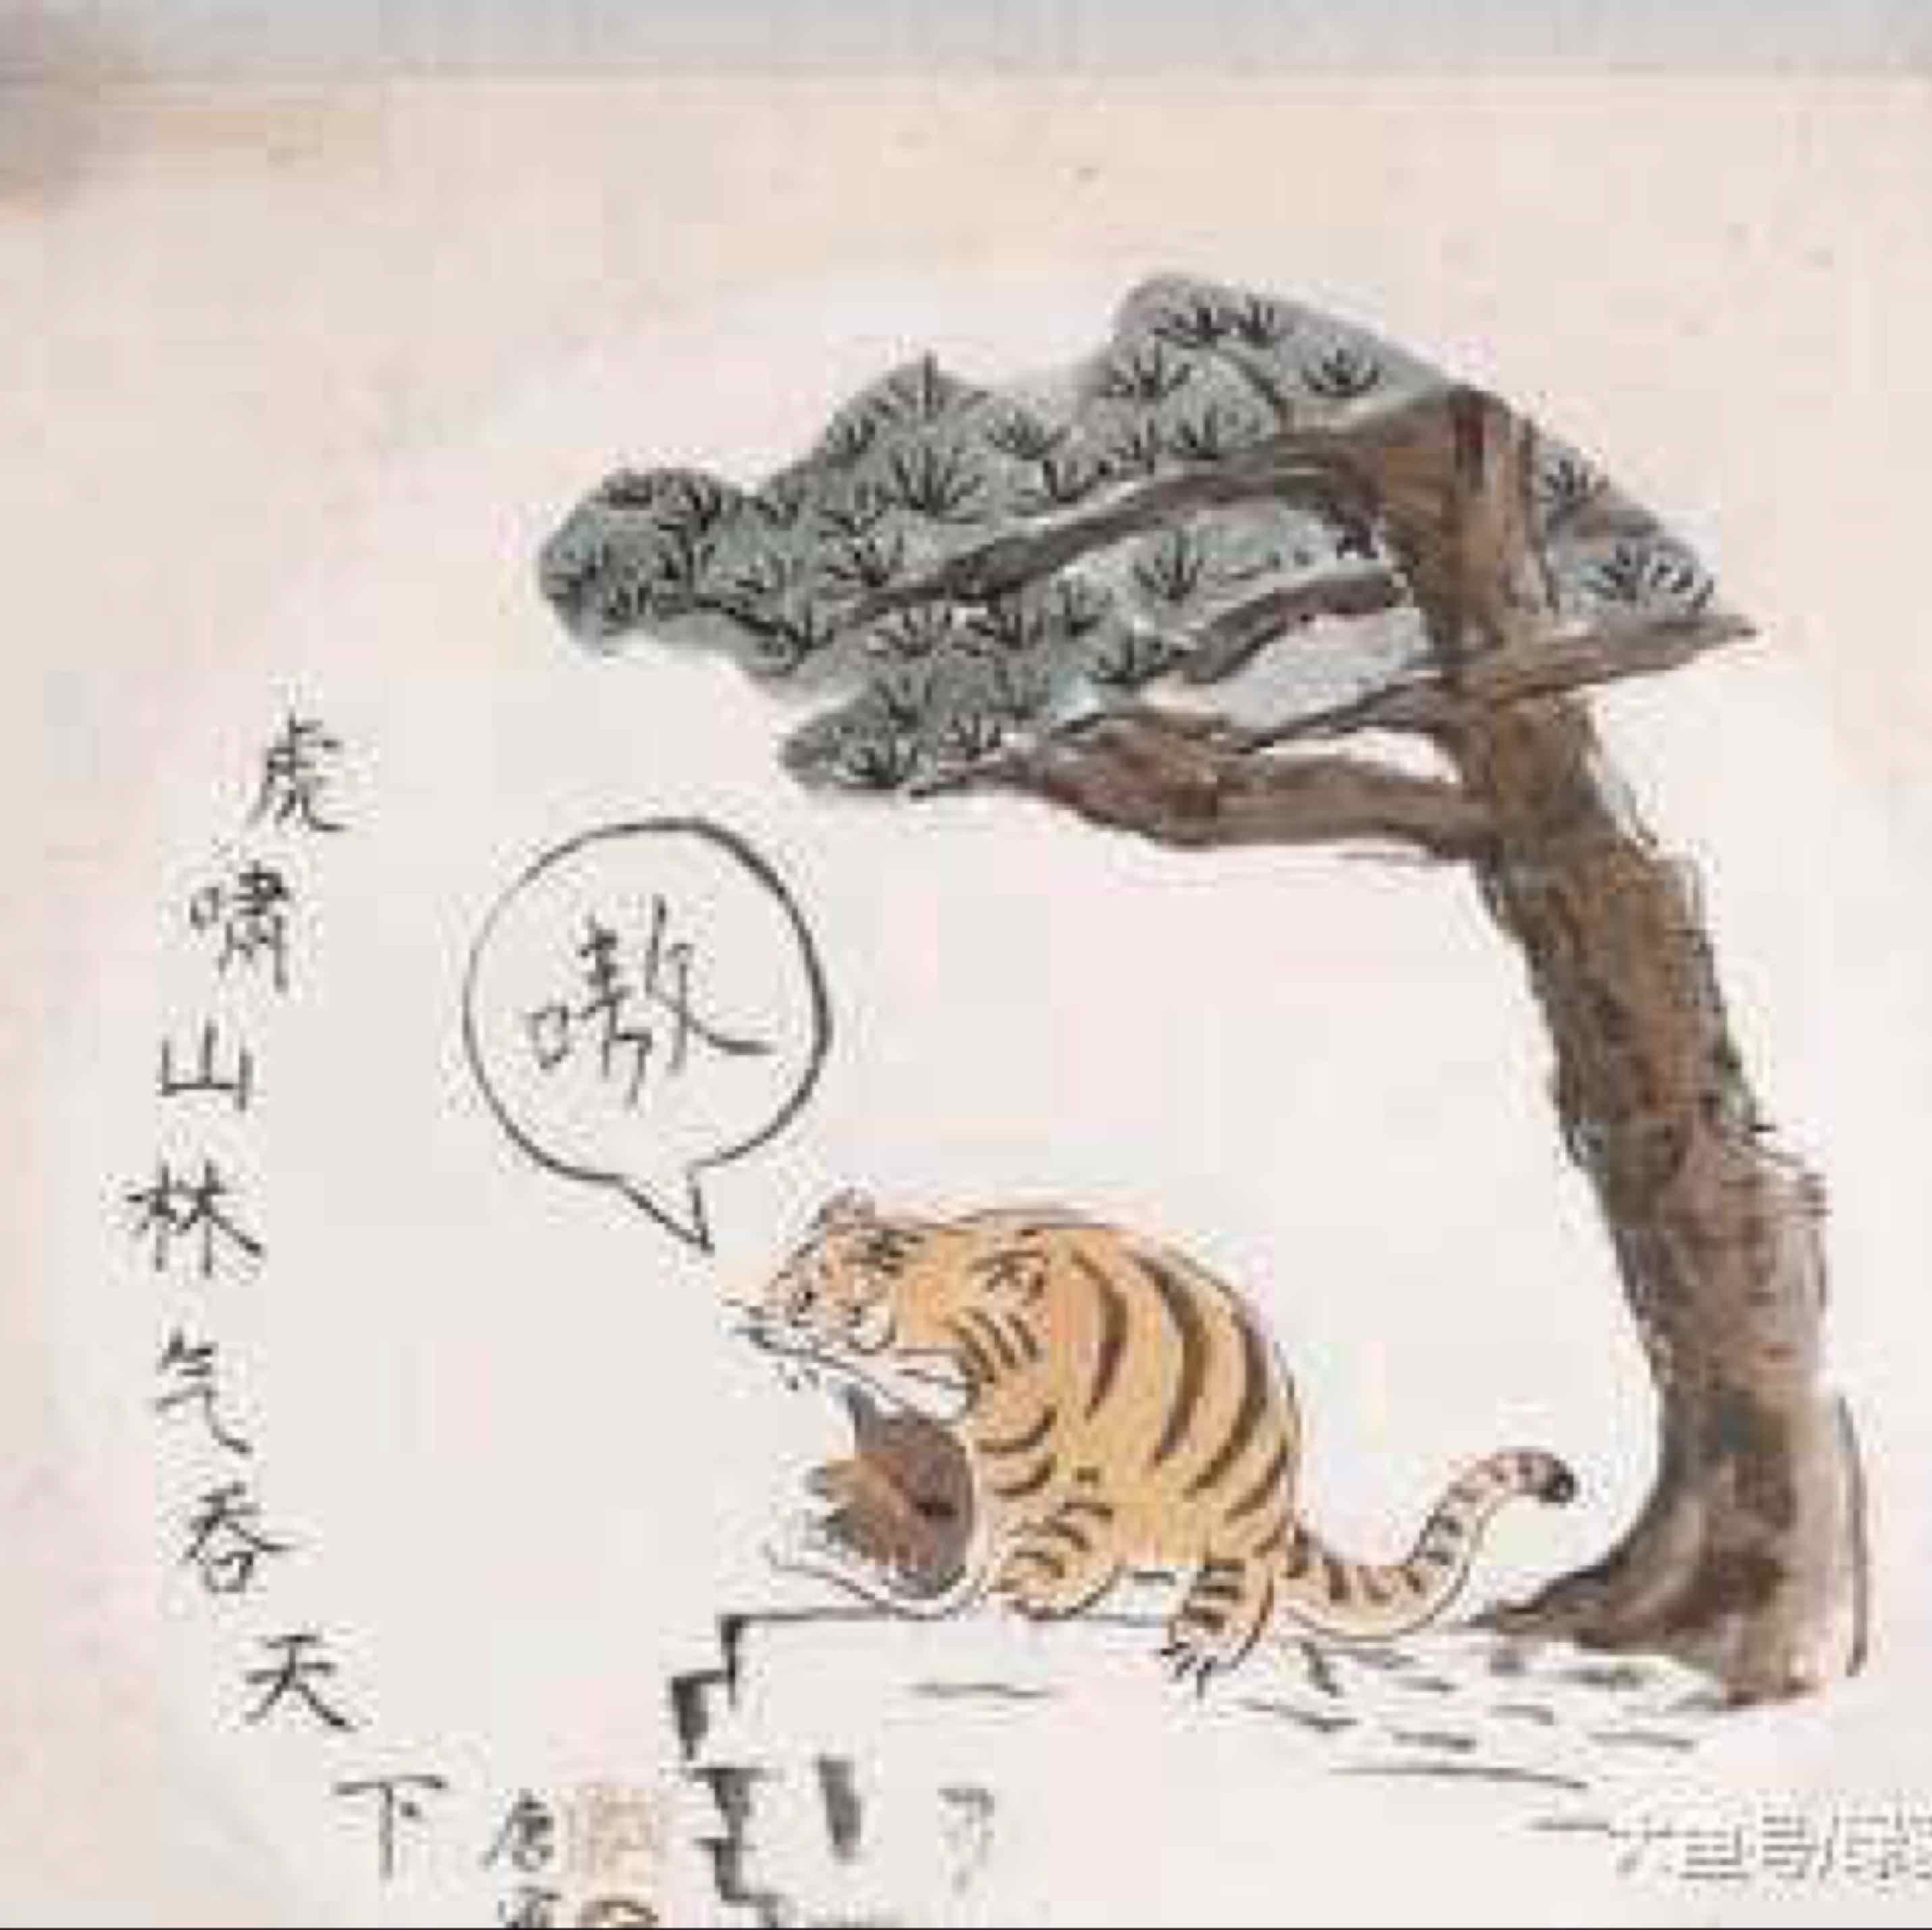 虎啸山林气吞天下
嗷
唐